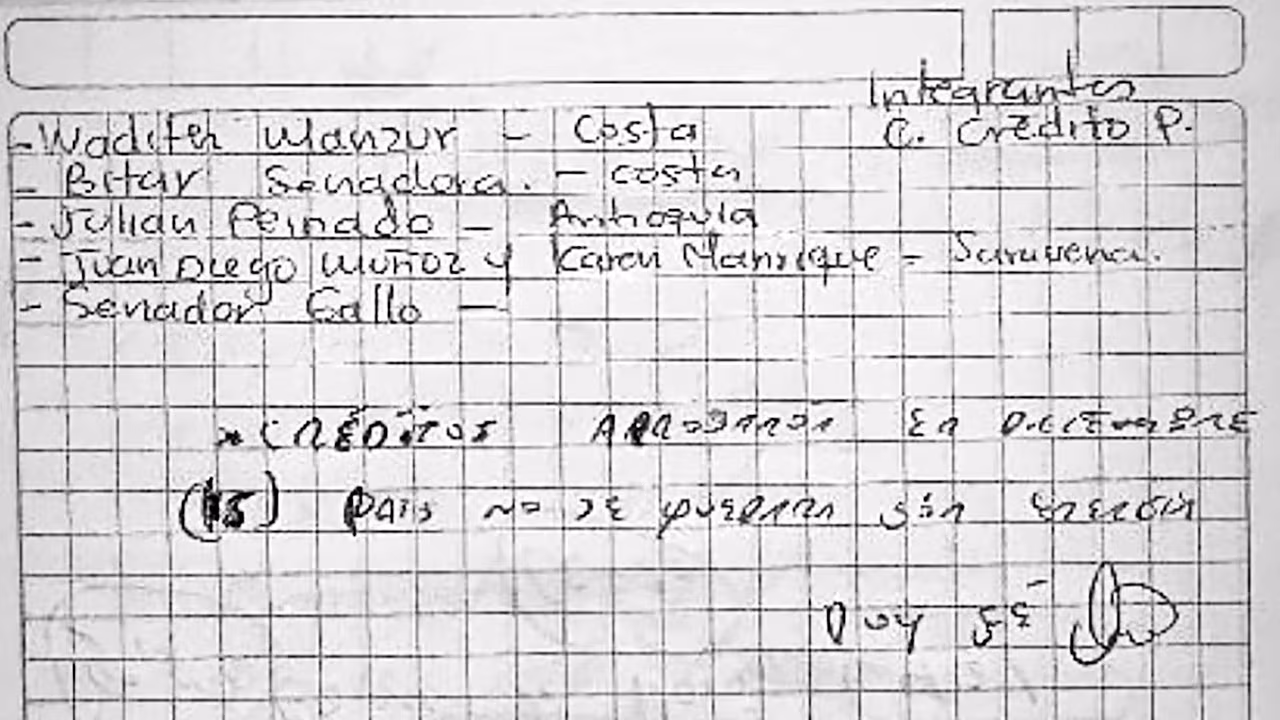 Integrantes
C. Crédito P.
- Wadith Manzur - Costa
- Bitar Senadora. - costa
- Julian Peinado - Antioquia
- Juan Diego Muñoz y Karen Manrique - Saravena.
- Senador Gallo -
* CRÉDITOS APROBARON EN DICIEMBRE
(15) PAIS NO SE QUEDARA SIN ENERGIA
DOY FE